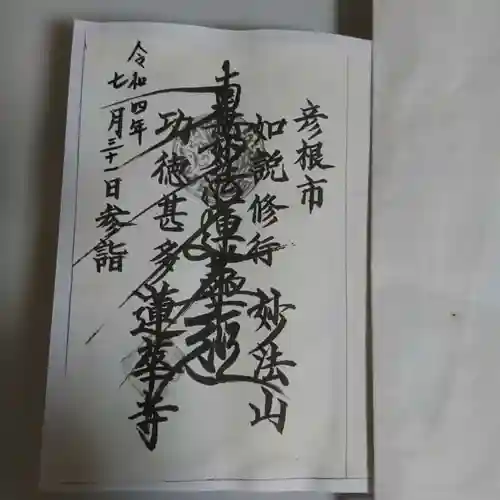 彦根市
如説修行 妙法山
南無妙法蓮華経
功徳甚多 蓮華寺
令和四年
七月三十一日参詣